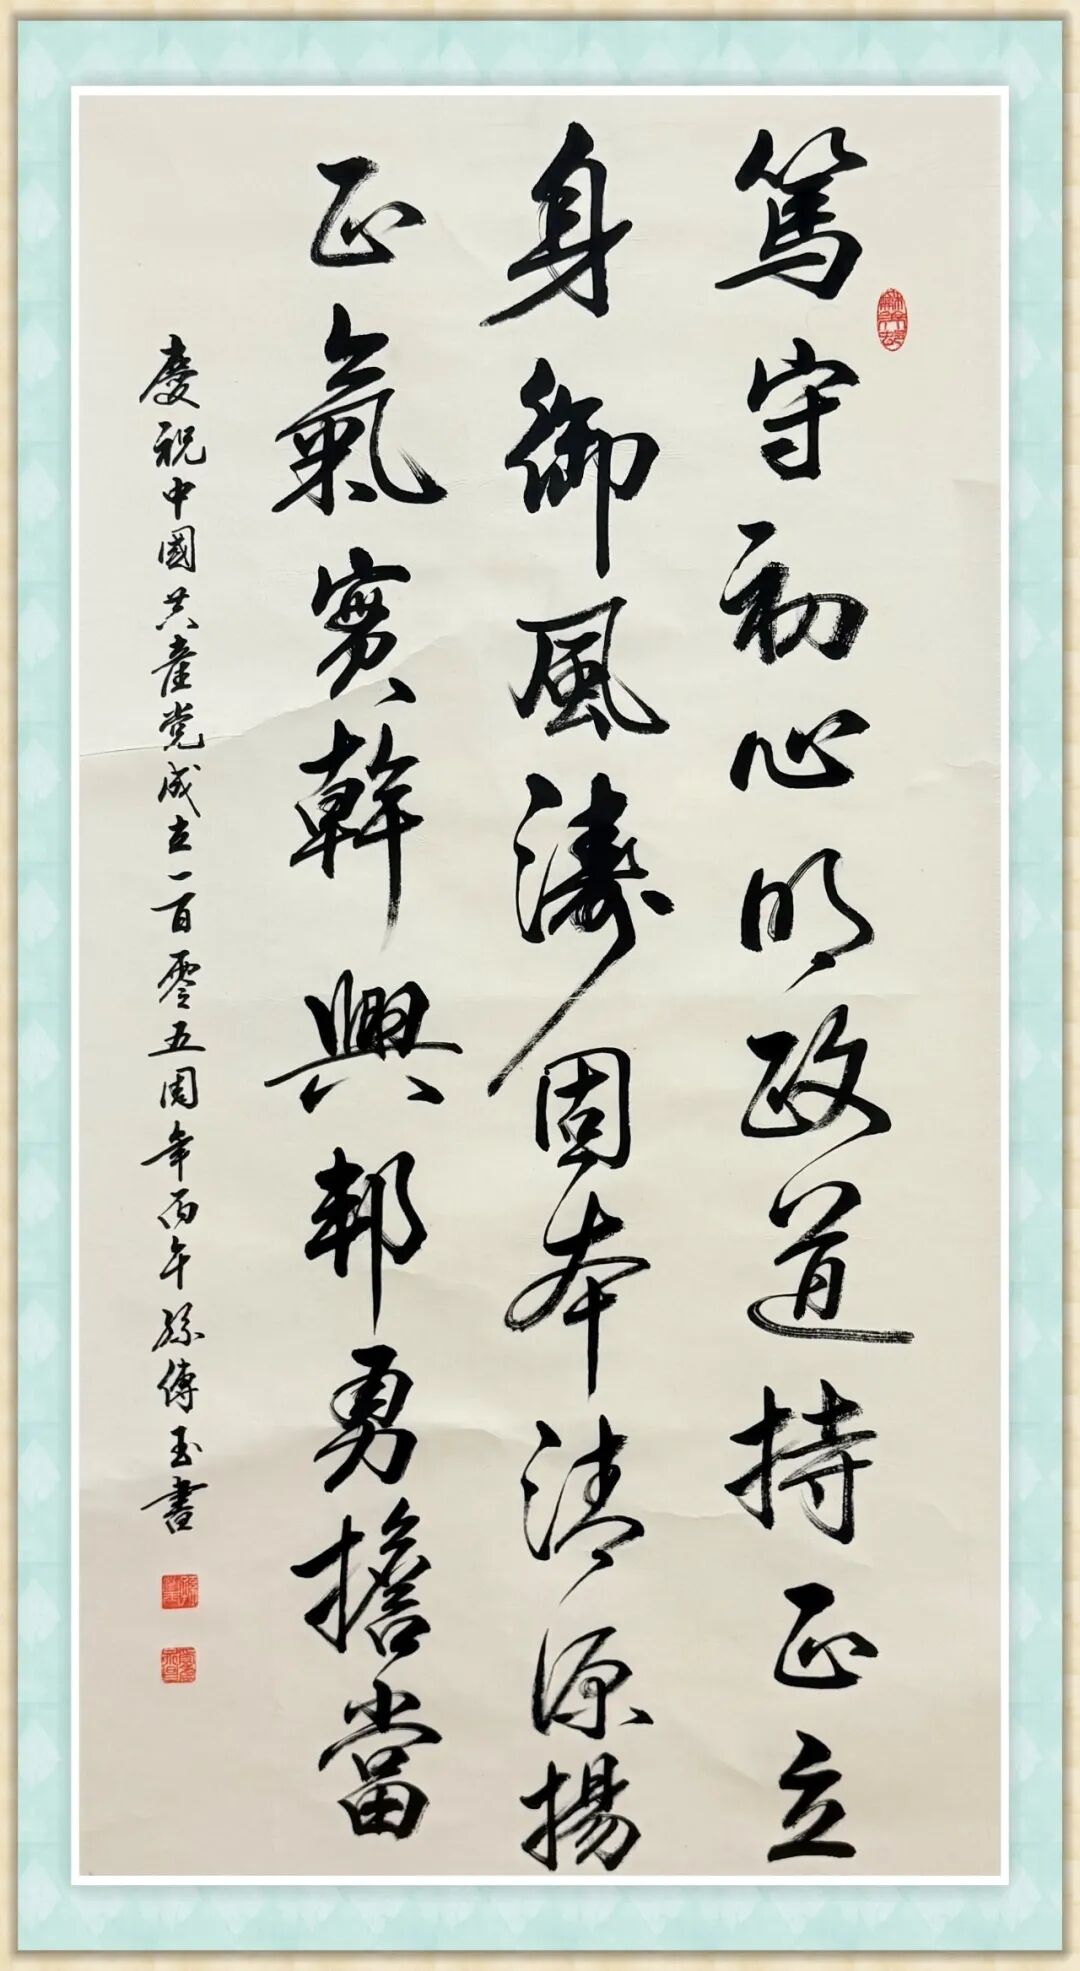 篤守初心明政道持正立
身御風濤固本清源揚
正氣實幹興邦勇擔當
慶祝中國共產党成立一百零五周年丙午孫傳玉書